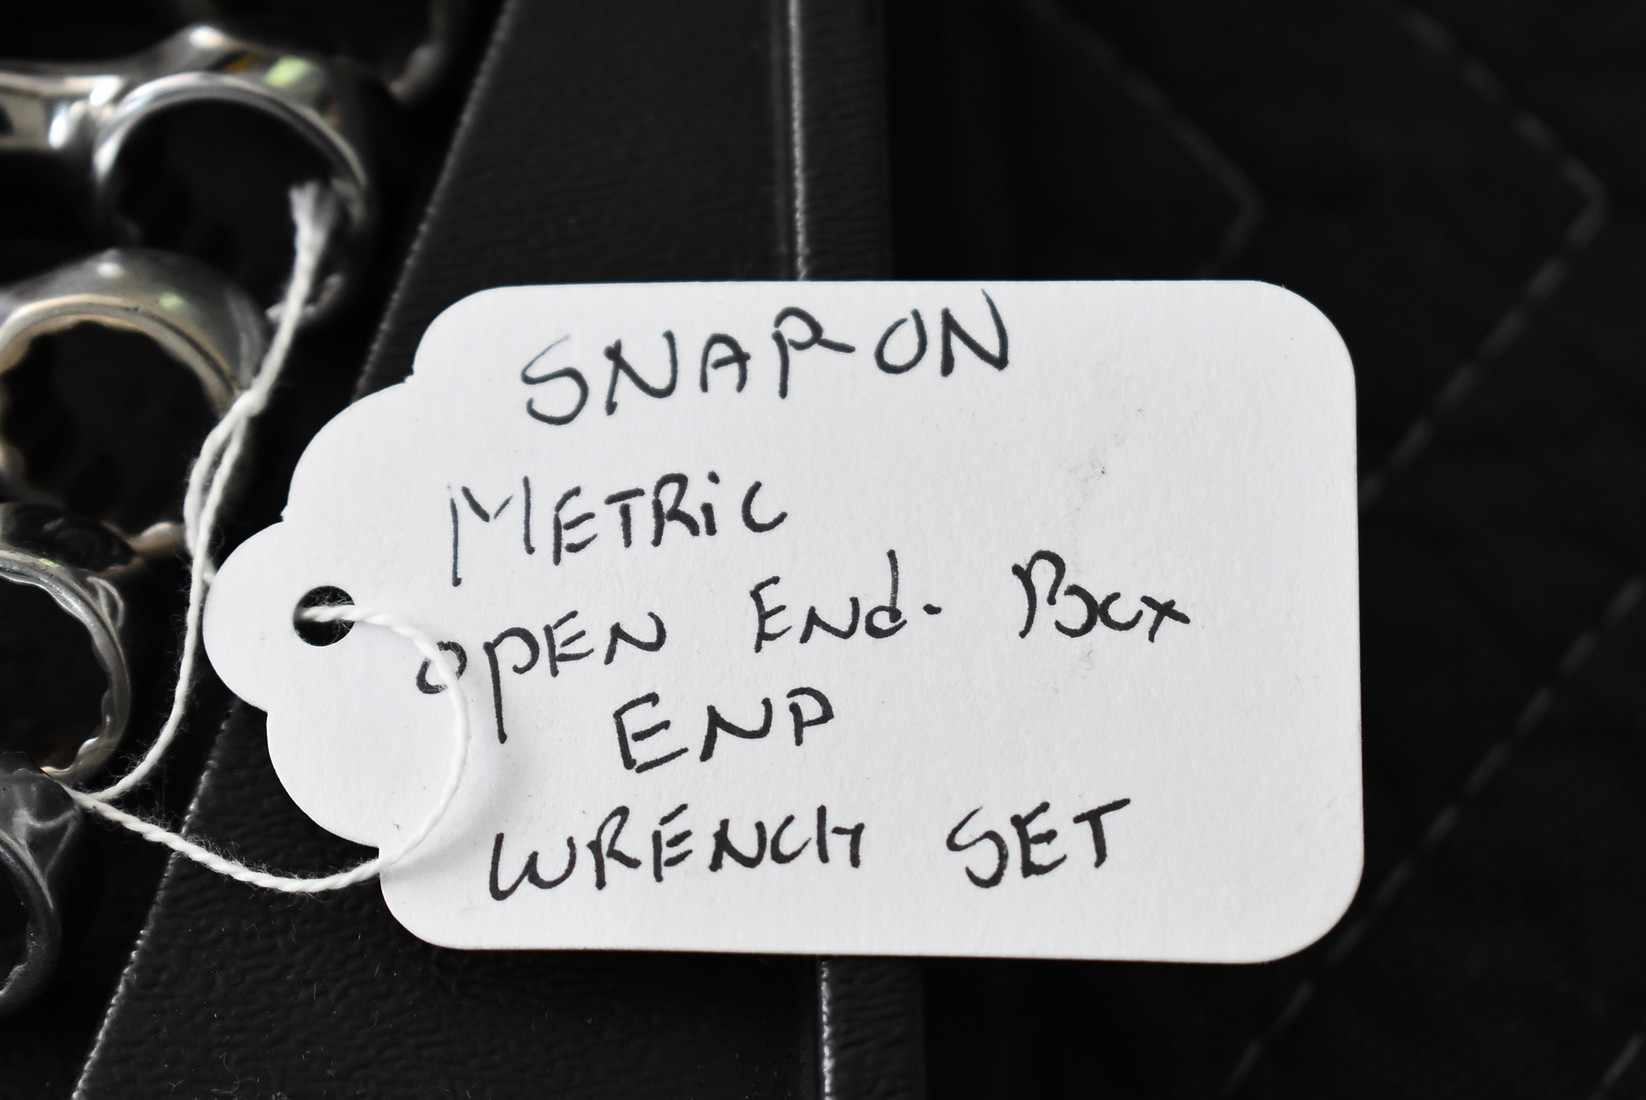 SNAP-ON
METRiC
OPEN ENd- Box
END
WRENCH SET